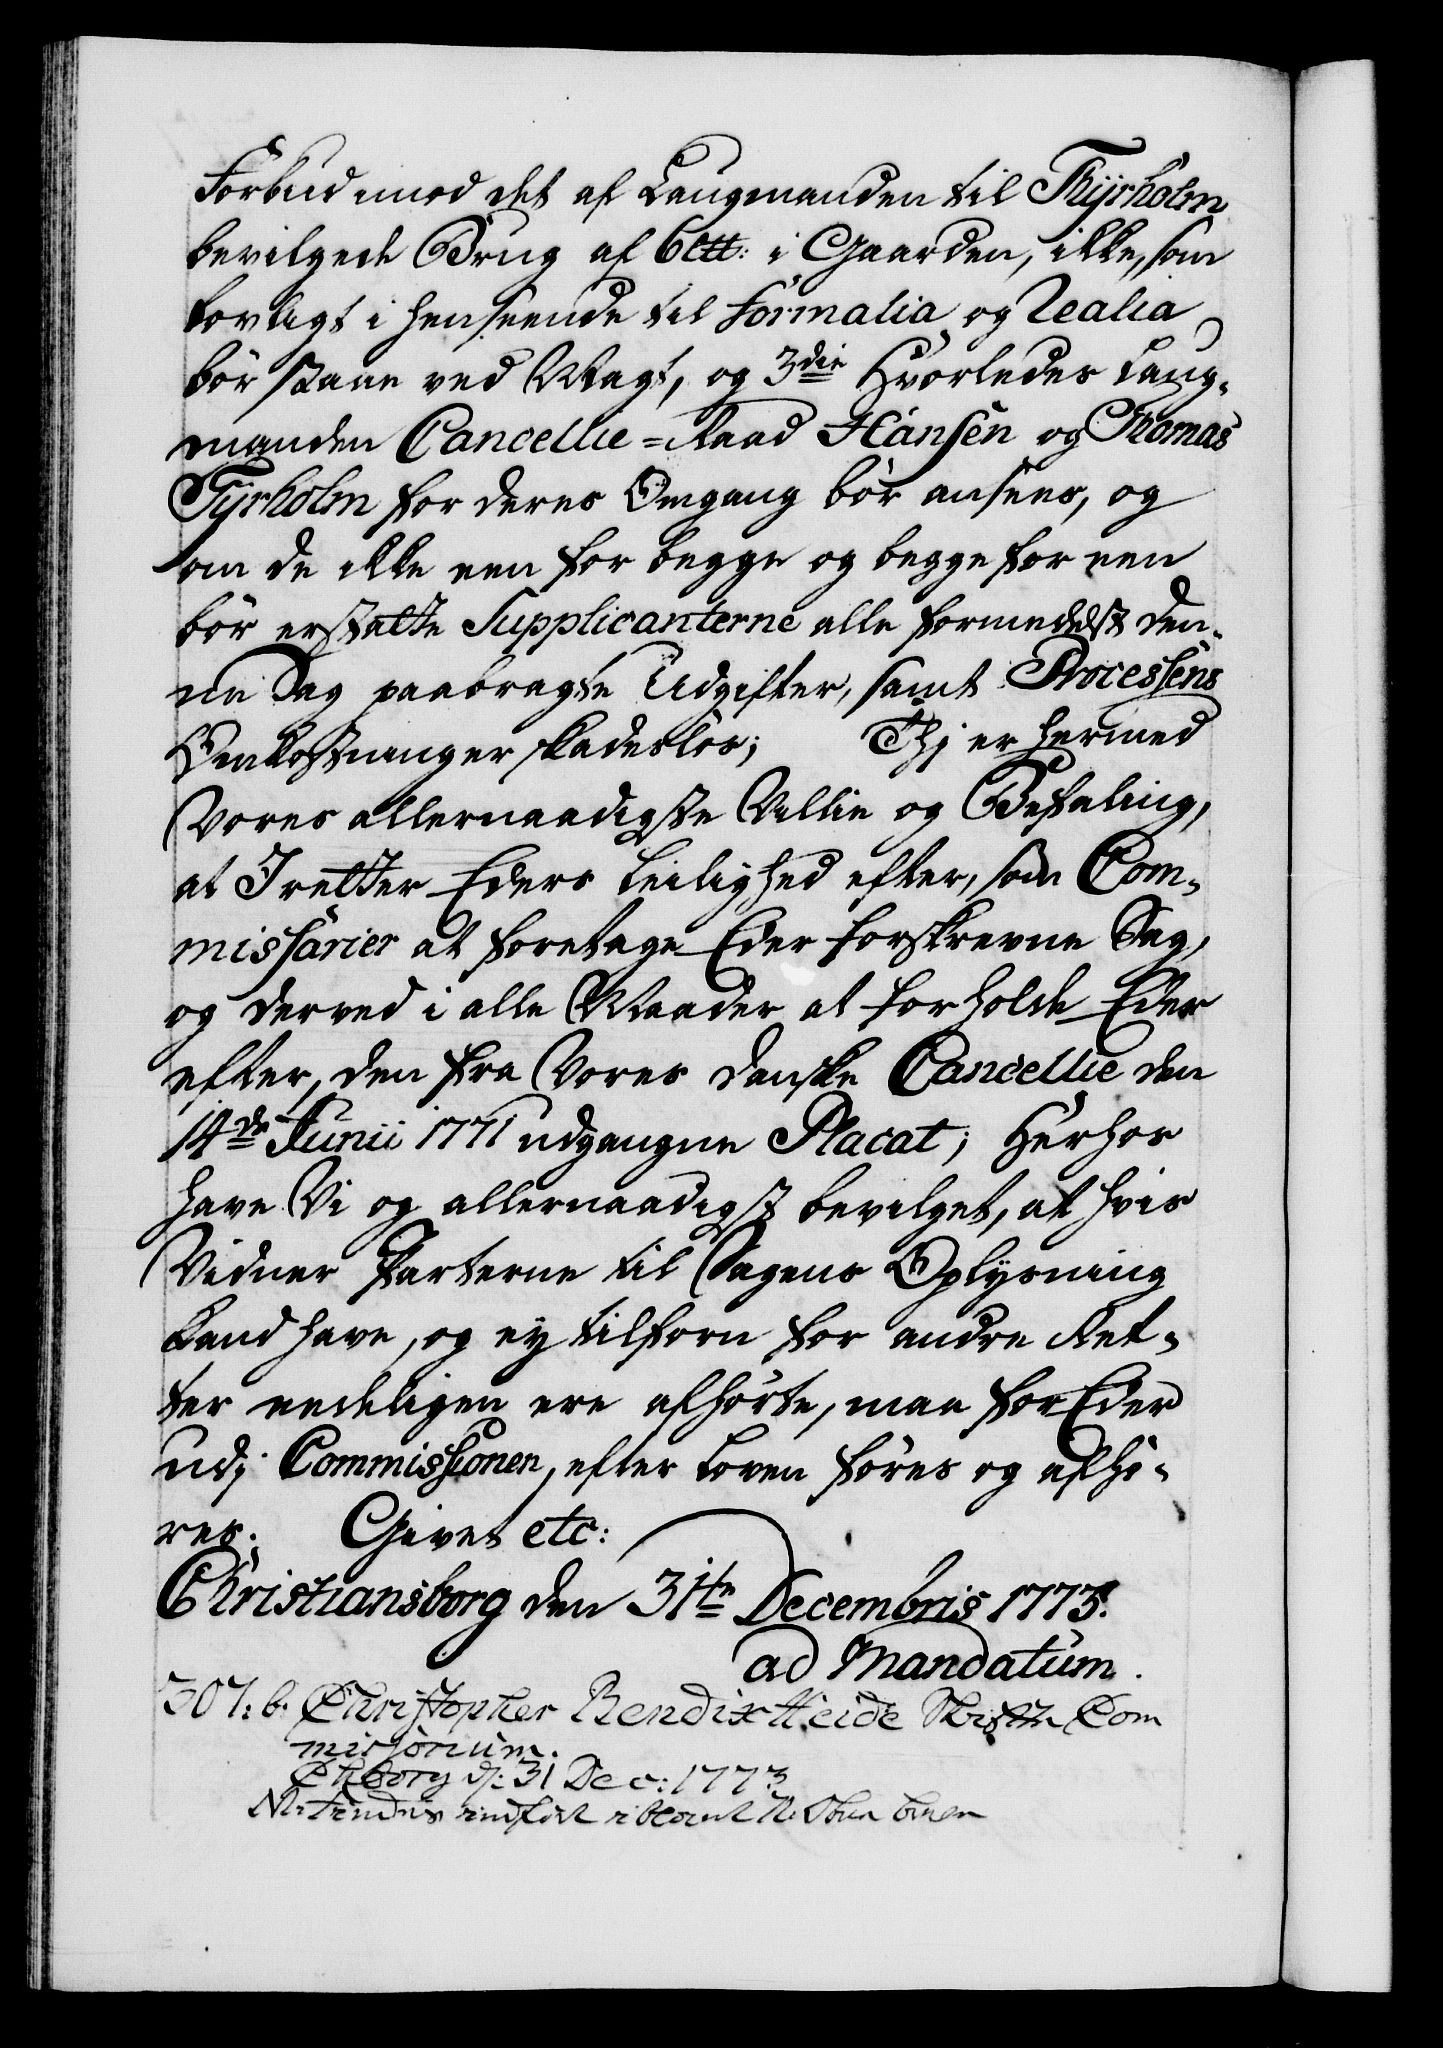 Forbud imod det af Laugmanden til Thyrholm
bevilgede Brug af 6 ℔: i Gaarden, ikke, som
lovligt i henseende til Formalia og Realia
bör staae ved Magt, og 3die Hvorledes Laug-
manden Cancellie-Raad Hansen og Thomas
Tyrholm for deres Omgang bör ansees, og
om de ikke een for begge og begge for een
bör erstatte Supplicanterne alle formedelst den-
ne Sag paabragte Udgifter, samt Processens
Omkostninger skadeslös; Thj er hermed
Vores allernaadigste Villie og Befaling,
at I retter Eders Leilighed efter, som Com-
missarier at foretage Eder forskrevne Sag,
og derved i alle Maader at forholde Eder
efter, den fra Vores danske Cancellie den
14de Junii 1771 udgangne Placat; Herhos
have Vi og allernaadigst bevilget, at hvis
Vidner Parterne til Sagens Oplysning
kand have, og ey tilforn for andre Ret-
ter eedeligen ere afhörte, maa for Eder
udj Commissionen, efter Loven föres og afhö-
res. Givet etc:
Christiansborg den 31te Decembris 1773.
ad Mandatum.
307: b: Christopher Bendix Heide Skifte Com
missorium.
Chborg d: 31 Dec: 1773